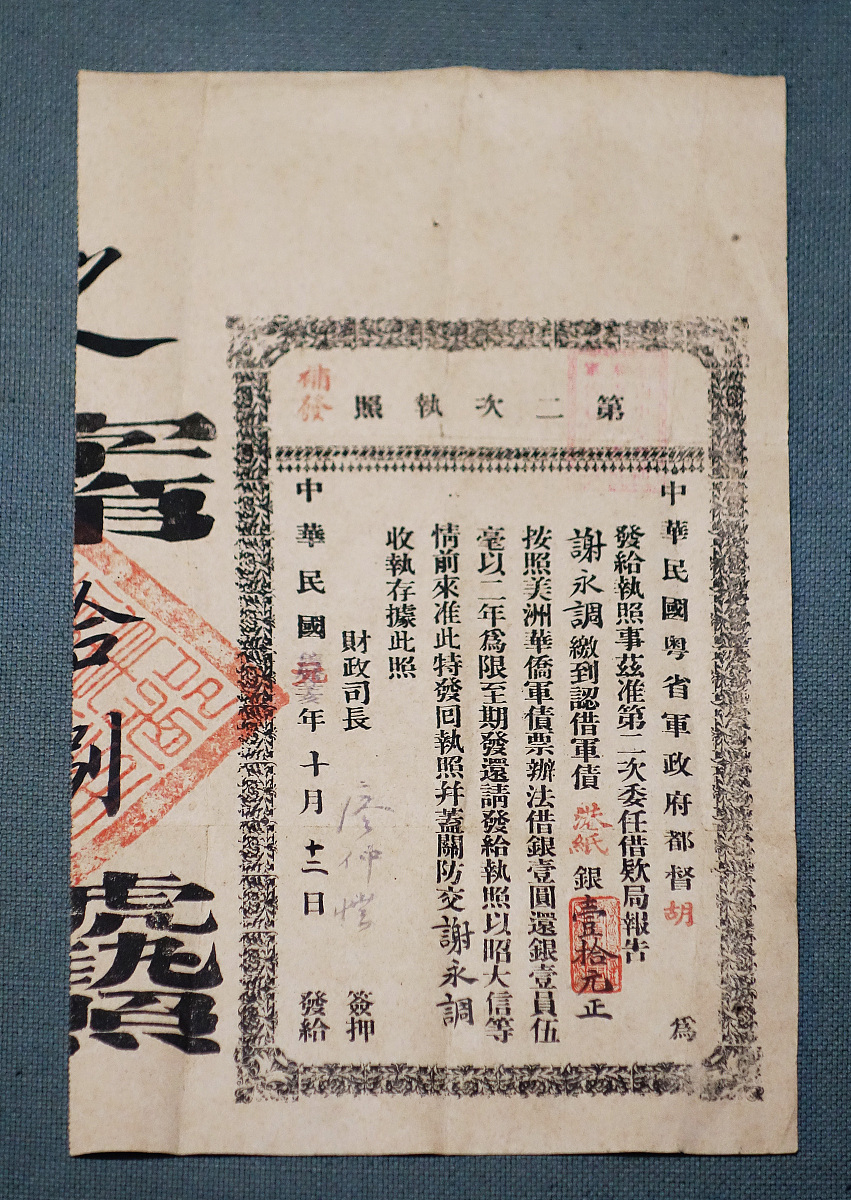 第二次執照
補發
中華民國粤省軍政府都督胡為
發給執照事茲准第二次委任借欵局報告
謝永調繳到認借軍債港紙銀壹拾元正
按照美洲華僑軍債票辦法借銀壹圓還銀壹員伍
毫以二年爲限至期發還請發給執照以昭大信等
情前來准此特發回執照幷蓋關防交謝永調
收執存據此照
財政司長廖仲愷簽押
中華民國元年十月十二日發給
拾捌
號執照